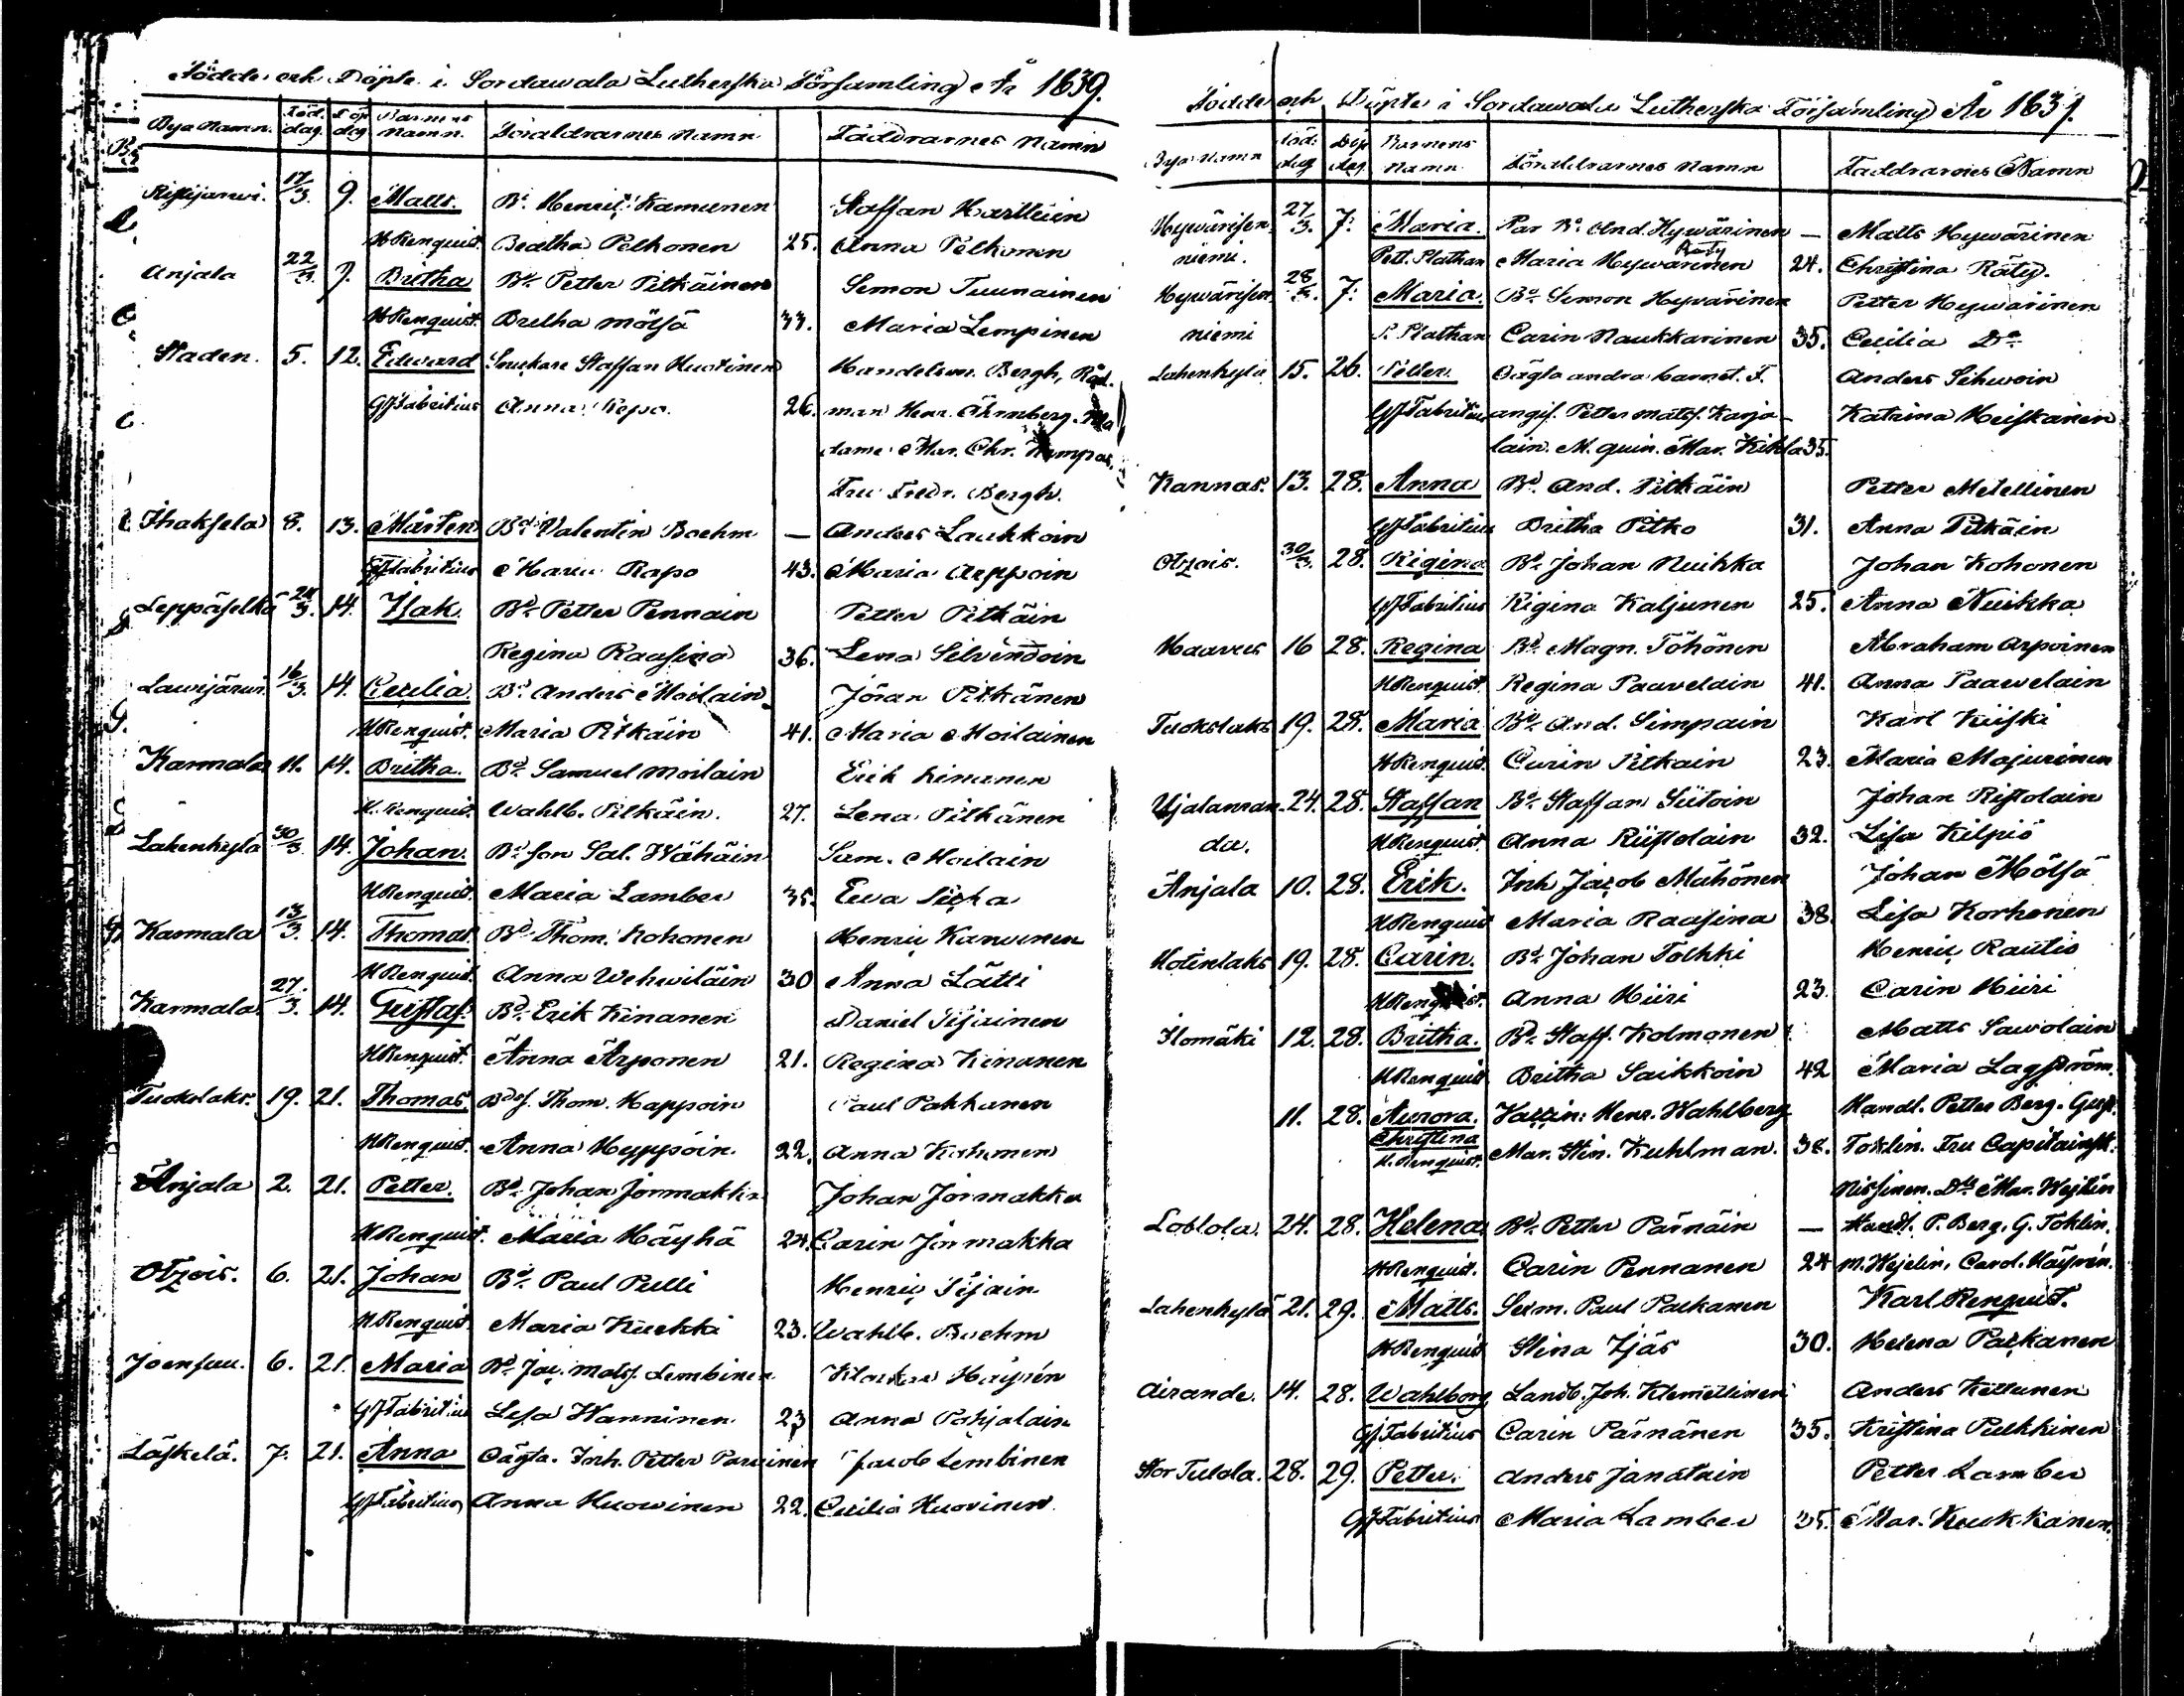 Födde och Döpte i Sordawala Lutherska Församling År 1839.
Bya Namn. Föd. dag. Döp dag Barnens namn. Föraldrarnes Namn Faddrarnes Namn
Ristijarwi. 17/3. 9. Matts. Bd. Henric Kamunen Staffan Hartikin
HRenquist. Beatha Pelkonen 25. Anna Pelkonen
Anjala 22/3. 9. Britha Bd. Petter Pitkäinen Semon Tuunainen
HRenquist. Bretha Mölsä 33. Maria Lempinen
Staden. 5. 12. Edward Snickare Staffan Huotinen Handelsm. Bergh, Råd-
GJFabritius Anna Repo. 26. man Henr. Öhrnberg. Ma
dame Mar. Chr.
Fru Fredr. Bergh.
Ihaksela 8. 13. Mårten Bd. Valentin Boehm — Anders Laukkoin
GJFabritius Maria Rapo 43. Maria Arppoin
Leppäselkä 24/3. 14. Isak. Bd. Petter Pennain Petter Pitkäin
Regina Raasina 36. Lena Silvendoin
Lawijärwi. 16/3. 14. Cecilia. Bd. Anders Moilain Jöran Pitkänen
HRenquist. Maria Pitkäin 41. Maria Moilainen
Karmala 11. 14. Britha. Bd. Samuel Moilain Erik Kinanen
H. Renquist. Wahlb. Pitkäin. 27. Lena Pitkänen
Lahenkylä 30/3. 14. Johan. Bd. son Sal. Wähäin Sam. Moilain
HRenquist. Maria Lamber 35. Eva
Karmala 13/3. 14. Thomas. Bd. Thom. Kohonen Henric Karvinen
HRenquist. Anna Wehwiläin 30 Anna Lätti
Karmala 27/3. 14. Gustaf. Bd. Erik Kinanen Daniel Sijainen
HRenquist. Anna Arponen 21. Regina Kinanen
Tuokslaks. 19. 21. Thomas. Bds. Thom. Happoin Paul Pakkanen
HRenquist. Anna Heyppöin. 22. Anna Kohonen
Anjala 2. 21. Petter. Bd. Johan Jormakka Johan Jormakka
HRenquist. Maria Häyhä 24. Carin Jormakka
Otzois. 6. 21. Johan Bd. Paul Pulli Henric Sijain
HRenquist. Maria Kuckki 23. Wahlb. Boehm
Joensuu. 6. 21. Maria Bd. Jac. Matss. Lembinen Häyrén
GJFabritius Lisa Hanninen 23 Anna Pohjalain
Läskelä. 7. 21. Anna Oägta. Inh. Petter Parvinen Jacob Lembinen
GJFabritius Anna Huowinen 22. Cecilia Huovinen.
Födde och Döpte i Sordawala Lutherska Församling År 1839.
Bya Namn Föd. dag Döp dag. Barnens Namn. Föräldrarnes Namn Faddrarnes Namn
Hywärisen 27/3. 7. Maria. Par Bd. And. Hywärinen — Matts Hywärinen
niemi. Pett. Plathan Maria Hywärinen Räty 24. Christina Räty.
Hywärisen 28/3. 7. Maria. Bd. Semon Hyvärinen Petter Hywärinen
niemi P. Plathan Carin Naukkarinen 35. Cecilia Do
Lahenkylä 15. 26. Petter. Oägta andra barnet. F. Anders Sihwoin
GJFabritius angif. Petter Matss. Karja- Katrina Heiskanen
lain. M. quin. Mar. Kikla 35.
Kannas. 13. 28. Anna Bd. And. Pitkäin Petter Metellinen
GJFabritius Britha Pitko 31. Anna Pitkäin
Otzois. 30/3. 28. Rigina Bd. Johan Nuikka Johan Kohonen
GJFabritius Rigina Kaljunen 25. Anna Nuikka
Haavus 16 28. Regina Bd. Magn. Töhönen Abraham Arpoinen
HRenquist. Regina Paavelain 41. Anna Paawelain
Tuokslaks 19. 28. Maria Bd. And. Simpain Karl Kiiski
HRenquist. Carin Pitkain 23. Maria Majurinen
Ujalanran- 24. 28. Staffan Bd. Staffan Siitoin Johan Ristolain
da. HRenquist. Anna Riistolain 32. Lisa Kilpiö
Anjala 10. 28. Erik. Inh Jacob Mähönen Johan Mölsä
HRenquist Maria Raasina 38. Lisa Korhonen
Hotinlaks 19. 28. Carin. Bd. Johan Tolkki Henric Rautio
HRenquist. Anna Hiiri 23. Carin Hiiri
Ilomäki 12. 28. Britha. Bd. Staff. Kolmonen Matts Sawolain
HRenquist Britha Saikkoin 42 Maria Lagström.
11. 28. Aurora. Henr. Wahlberg Handl. Petter Berg. Gust.
Christina
H. Renquist. Mar. Stin. Kuhlman. 38. Toklin. Fru Capitainsk.
Nissinen. Dll Mar. Wejlin
Loblola. 24. 28. Helena. Bd. Petter Pärnäin — Handl. P. Berg. G. Toklin.
HRenquist. Carin Pennanen 24 M. Wejelin, Carol. Häyrén.
Lahenkylä 21. 29. Matts. Sexm. Paul Packanen Karl Renquist.
HRenquist Stina Ijäs 30. Helena Packanen
Airande. 14. 28. Wahlborg Landb. Joh. Klemettinen Anders Kettunen
GJFabritius Carin Pärnänen 35. Kristina Pulkkinen
Stor Tulola. 28. 29. Petter. Anders Janatain Petter Lamber
GJFabritius Maria Lamber 35. Mar. Kuukkanen.